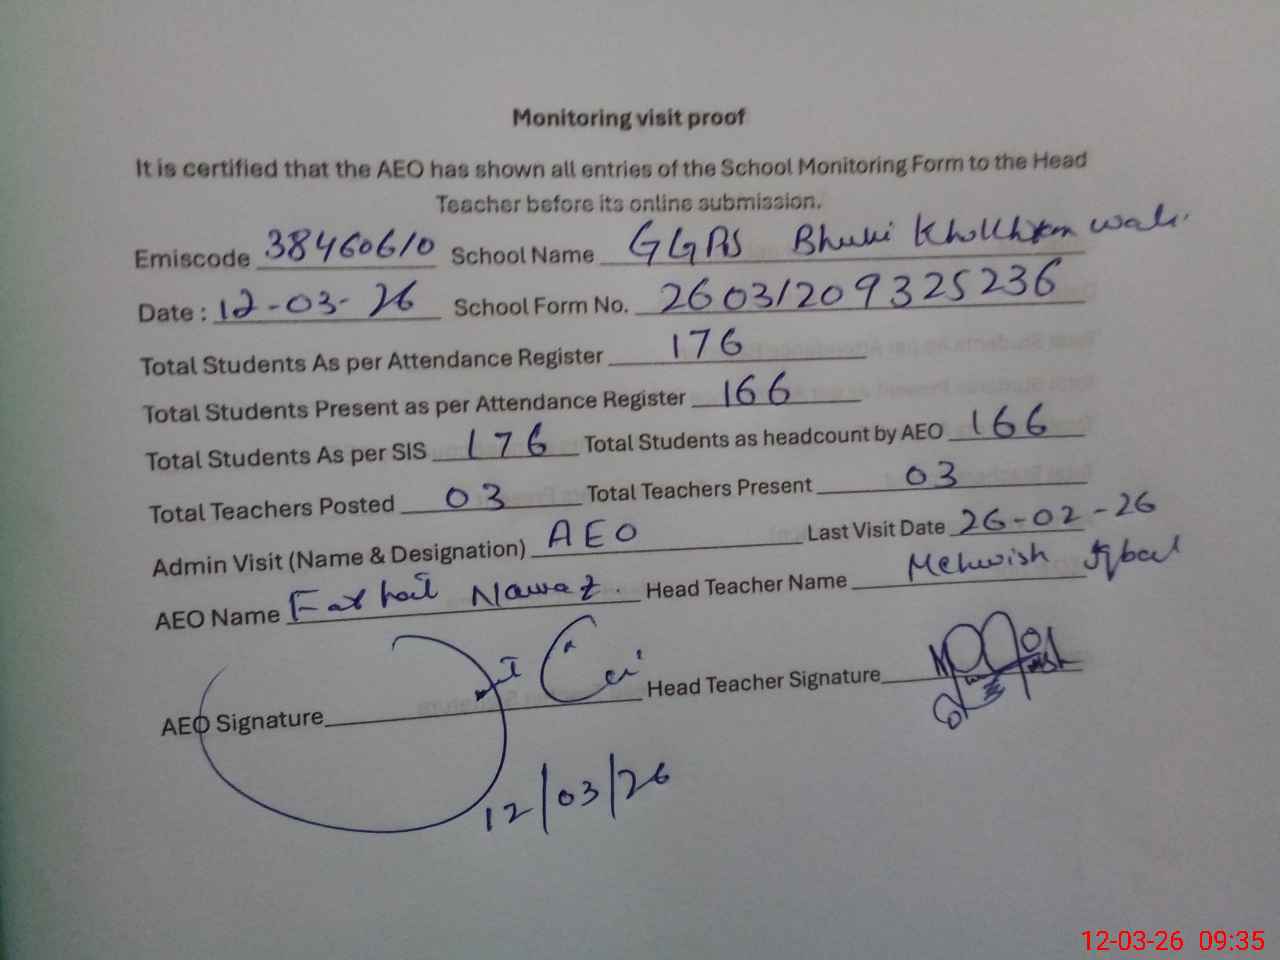 Monitoring visit proof
It is certified that the AEO has shown all entries of the School Monitoring Form to the Head
Teacher before its online submission.
Emiscode 38460610 School Name GGPS Bhuki
Date : 12-03-26 School Form No. 26031209325236
Total Students As per Attendance Register 176
Total Students Present as per Attendance Register 166
Total Students As per SIS 176 Total Students as headcount by AEO 166
Total Teachers Posted 03 Total Teachers Present 03
Admin Visit (Name & Designation) AEO Last Visit Date 26-02-26
AEO Name Nawaz Head Teacher Name Mehwish Iqbal
AEO Signature Head Teacher Signature
12/03/26
12-03-26 09:35